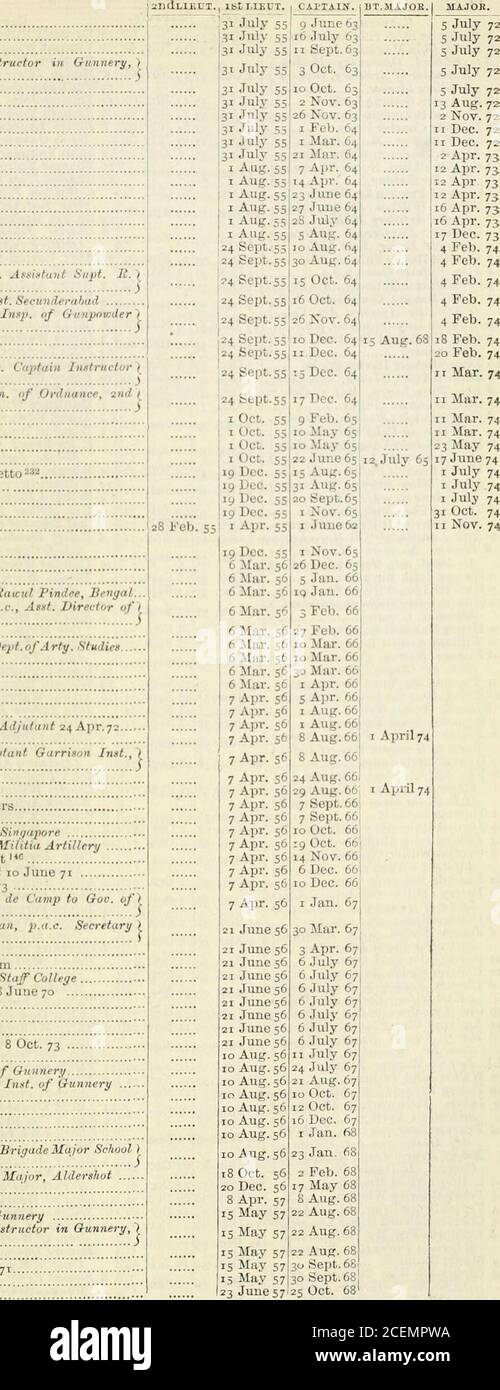 2ndLIEUT. 1st LIEUT. CAPTAIN. BT.MAJOR. MAJOR.
...... 31 July 55 9 June 63 ...... 5 July 72
...... 31 July 55 16 July 63 ...... 5 July 72
...... 31 July 55 11 Sept. 63 ...... 5 July 72
tructor in Gunnery, } ...... 31 July 55 3 Oct. 63 ...... 5 July 72
...... 31 July 55 10 Oct. 63 ...... 5 July 72
...... 31 July 55 2 Nov. 63 ...... 13 Aug. 72
...... 31 July 55 26 Nov. 63 ...... 2 Nov. 72
...... 31 July 55 1 Feb. 64 ...... 11 Dec. 72
...... 31 July 55 1 Mar. 64 ...... 11 Dec. 72
...... 31 July 55 21 Mar. 64 ...... 2 Apr. 73
...... 1 Aug. 55 7 Apr. 64 ...... 12 Apr. 73
...... 1 Aug. 55 14 Apr. 64 ...... 12 Apr. 73
...... 1 Aug. 55 23 June 64 ...... 12 Apr. 73
...... 1 Aug. 55 27 June 64 ...... 16 Apr. 73
...... 1 Aug. 55 28 July 64 ...... 16 Apr. 73
...... 1 Aug. 55 5 Aug. 64 ...... 17 Dec. 73
...... 24 Sept. 55 10 Aug. 64 ...... 4 Feb. 74
...... 24 Sept. 55 30 Aug. 64 ...... 4 Feb. 74
. Assistant Supt. R. } ...... 24 Sept. 55 15 Oct. 64 ...... 4 Feb. 74
st. Secunderabad ...... 24 Sept. 55 16 Oct. 64 ...... 4 Feb. 74
Insp. of Gunpowder } ...... 24 Sept. 55 26 Nov. 64 ...... 4 Feb. 74
...... 24 Sept. 55 10 Dec. 64 15 Aug. 68 18 Feb. 74
...... 24 Sept. 55 11 Dec. 64 ...... 20 Feb. 74
. Captain Instructor } ...... 24 Sept. 55 15 Dec. 64 ...... 11 Mar. 74
n. of Ordnance, 2nd } ...... 24 Sept. 55 17 Dec. 64 ...... 11 Mar. 74
...... 1 Oct. 55 9 Feb. 65 ...... 11 Mar. 74
...... 1 Oct. 55 10 May 65 ...... 11 Mar. 74
...... 1 Oct. 55 10 May 65 ...... 23 May 74
...... 1 Oct. 55 22 June 65 12 July 65 17 June 74
etto 232 ...... 19 Dec. 55 15 Aug. 65 ...... 1 July 74
...... 19 Dec. 55 31 Aug. 65 ...... 1 July 74
...... 19 Dec. 55 20 Sept. 65 ...... 1 July 74
...... 19 Dec. 55 1 Nov. 65 ...... 31 Oct. 74
28 Feb. 55 1 Apr. 55 1 June 62 ...... 11 Nov. 74
...... 19 Dec. 55 1 Nov. 65
...... 6 Mar. 56 26 Dec. 65
...... 6 Mar. 56 5 Jan. 66
Rawul Pindee, Bengal ... 6 Mar. 56 19 Jan. 66
.c., Asst. Director of } ...... 6 Mar. 56 3 Feb. 66
...... 6 Mar. 56 27 Feb. 66
Dept. of Arty. Studies ...... 6 Mar. 56 10 Mar. 66
...... 6 Mar. 56 10 Mar. 66
...... 6 Mar. 56 30 Mar. 66
...... 6 Mar. 56 1 Apr. 66
...... 7 Apr. 56 5 Apr. 66
...... 7 Apr. 56 1 Aug. 66
Adjutant 24 Apr. 72 ...... 7 Apr. 56 1 Aug. 66
...... 7 Apr. 56 8 Aug. 66 1 April 74
stant Garrison Inst., } ...... 7 Apr. 56 8 Aug. 66
...... 7 Apr. 56 24 Aug. 66
...... 7 Apr. 56 29 Aug. 66 1 April 74
rs ...... 7 Apr. 56 7 Sept. 66
...... 7 Apr. 56 7 Sept. 66
Singapore ...... 7 Apr. 56 10 Oct. 66
Militia Artillery ...... 7 Apr. 56 19 Oct. 66
t 146 ...... 7 Apr. 56 14 Nov. 66
10 June 71 ...... 7 Apr. 56 6 Dec. 66
3 ...... 7 Apr. 56 10 Dec. 66
de Camp to Gov. of } ...... 7 Apr. 56 1 Jan. 67
an, p.a.c. Secretary } ...... 21 June 56 30 Mar. 67
...... 21 June 56 3 Apr. 67
m ...... 21 June 56 6 July 67
Staff College ...... 21 June 56 6 July 67
June 70 ...... 21 June 56 6 July 67
...... 21 June 56 6 July 67
...... 21 June 56 6 July 67
...... 21 June 56 6 July 67
8 Oct. 73 ...... 21 June 56 6 July 67
...... 10 Aug. 56 11 July 67
of Gunnery ...... 10 Aug. 56 24 July 67
Inst. of Gunnery ...... 10 Aug. 56 21 Aug. 67
...... 10 Aug. 56 10 Oct. 67
...... 10 Aug. 56 12 Oct. 67
...... 10 Aug. 56 16 Dec. 67
...... 10 Aug. 56 1 Jan. 68
Brigade Major School } ...... 10 Aug. 56 23 Jan. 68
Major, Aldershot ...... 18 Oct. 56 2 Feb. 68
...... 20 Dec. 56 17 May 68
...... 8 Apr. 57 8 Aug. 68
unnery ...... 15 May 57 22 Aug. 68
structor in Gunnery, } ...... 15 May 57 22 Aug. 68
...... 15 May 57 22 Aug. 68
71 ...... 15 May 57 30 Sept. 68
...... 15 May 57 30 Sept. 68
...... 23 June 57 25 Oct. 68
alamy
Image ID: 2CEMPWA
www.alamy.com